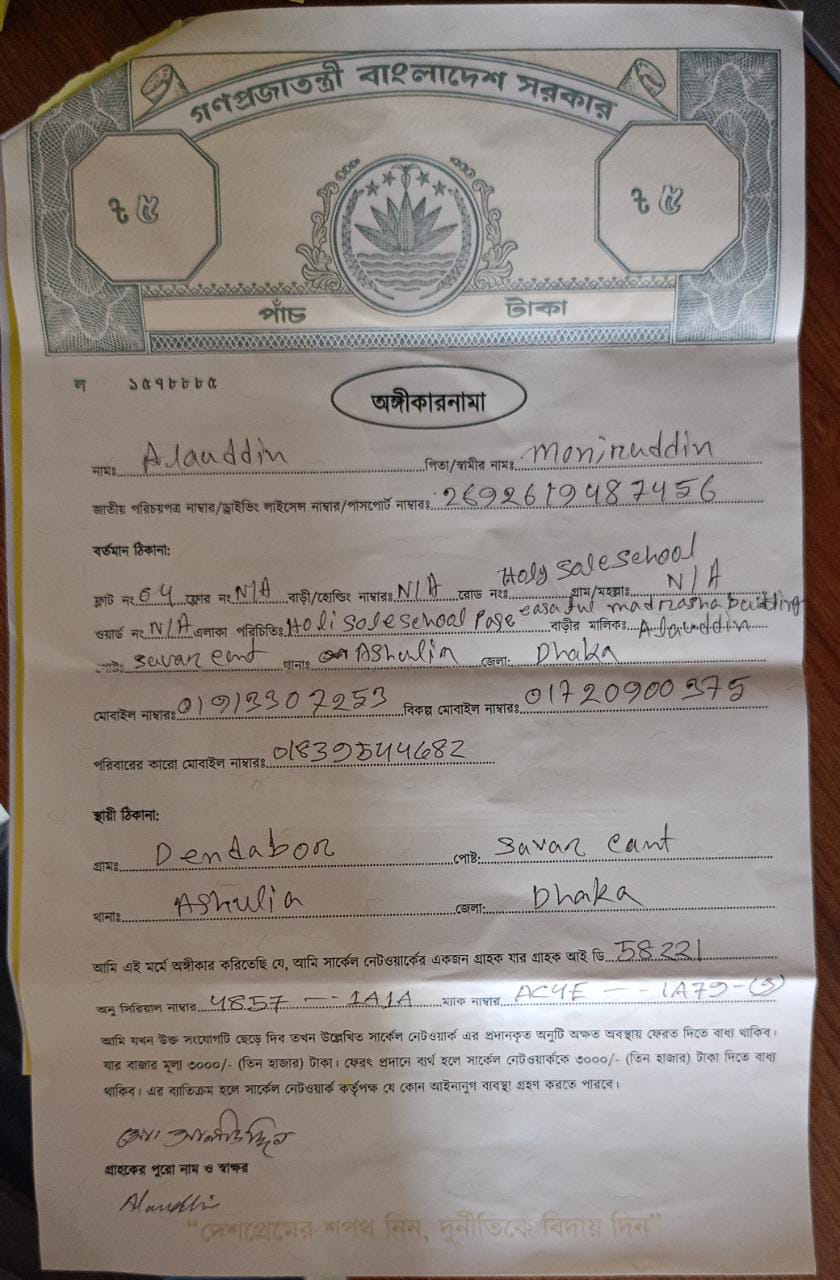 গণপ্রজাতন্ত্রী বাংলাদেশ সরকার
৳ ৫ ৳ ৫
পাঁচ টাকা
ল ১৫৭৮৮৮৫
অঙ্গীকারনামা
নামঃ Alauddin পিতা/স্বামীর নামঃ Moniruddin
জাতীয় পরিচয়পত্র নাম্বার/ড্রাইভিং লাইসেন্স নাম্বার/পাসপোর্ট নাম্বারঃ 2692619487456
বর্তমান ঠিকানা:
ফ্লাট নং 04 ফ্লোর নং N/A বাড়ী/হোল্ডিং নাম্বারঃ N/A রোড নংঃ Holy Sole School গ্রাম/মহল্লাঃ N/A
ওয়ার্ড নং N/A এলাকা পরিচিতিঃ Holi Sole School Page madrasha building বাড়ীর মালিকঃ Alauddin
savar cant থানাঃ Ashulia জেলা: Dhaka
মোবাইল নাম্বারঃ 01913307253 বিকল্প মোবাইল নাম্বারঃ 01720900375
পরিবারের কারো মোবাইল নাম্বারঃ 01839544682
স্থায়ী ঠিকানা:
গ্রামঃ Dendabor পোষ্ট: Savar cant
থানাঃ Ashulia জেলা: Dhaka
আমি এই মর্মে অঙ্গীকার করিতেছি যে, আমি সার্কেল নেটওয়ার্কের একজন গ্রাহক যার গ্রাহক আই ডি 58221
অনু সিরিয়াল নাম্বার 4857 -- 1A1A ম্যাক নাম্বার AC4E -- 1A79-(3)
আমি যখন উক্ত সংযোগটি ছেড়ে দিব তখন উল্লেখিত সার্কেল নেটওয়ার্ক এর প্রদানকৃত অনুটি অক্ষত অবস্থায় ফেরত দিতে বাধ্য থাকিব।
যার বাজার মূল্য ৩০০০/- (তিন হাজার) টাকা। ফেরৎ প্রদানে ব্যর্থ হলে সার্কেল নেটওয়ার্ককে ৩০০০/- (তিন হাজার) টাকা দিতে বাধ্য
থাকিব। এর ব্যতিক্রম হলে সার্কেল নেটওয়ার্ক কর্তৃপক্ষ যে কোন আইনানুগ ব্যবস্থা গ্রহণ করতে পারবে।
মোঃ আলাউদ্দিন
গ্রাহকের পুরো নাম ও স্বাক্ষর
Alauddin
“দেশপ্রেমের শপথ নিন, দুর্নীতিকে বিদায় দিন”